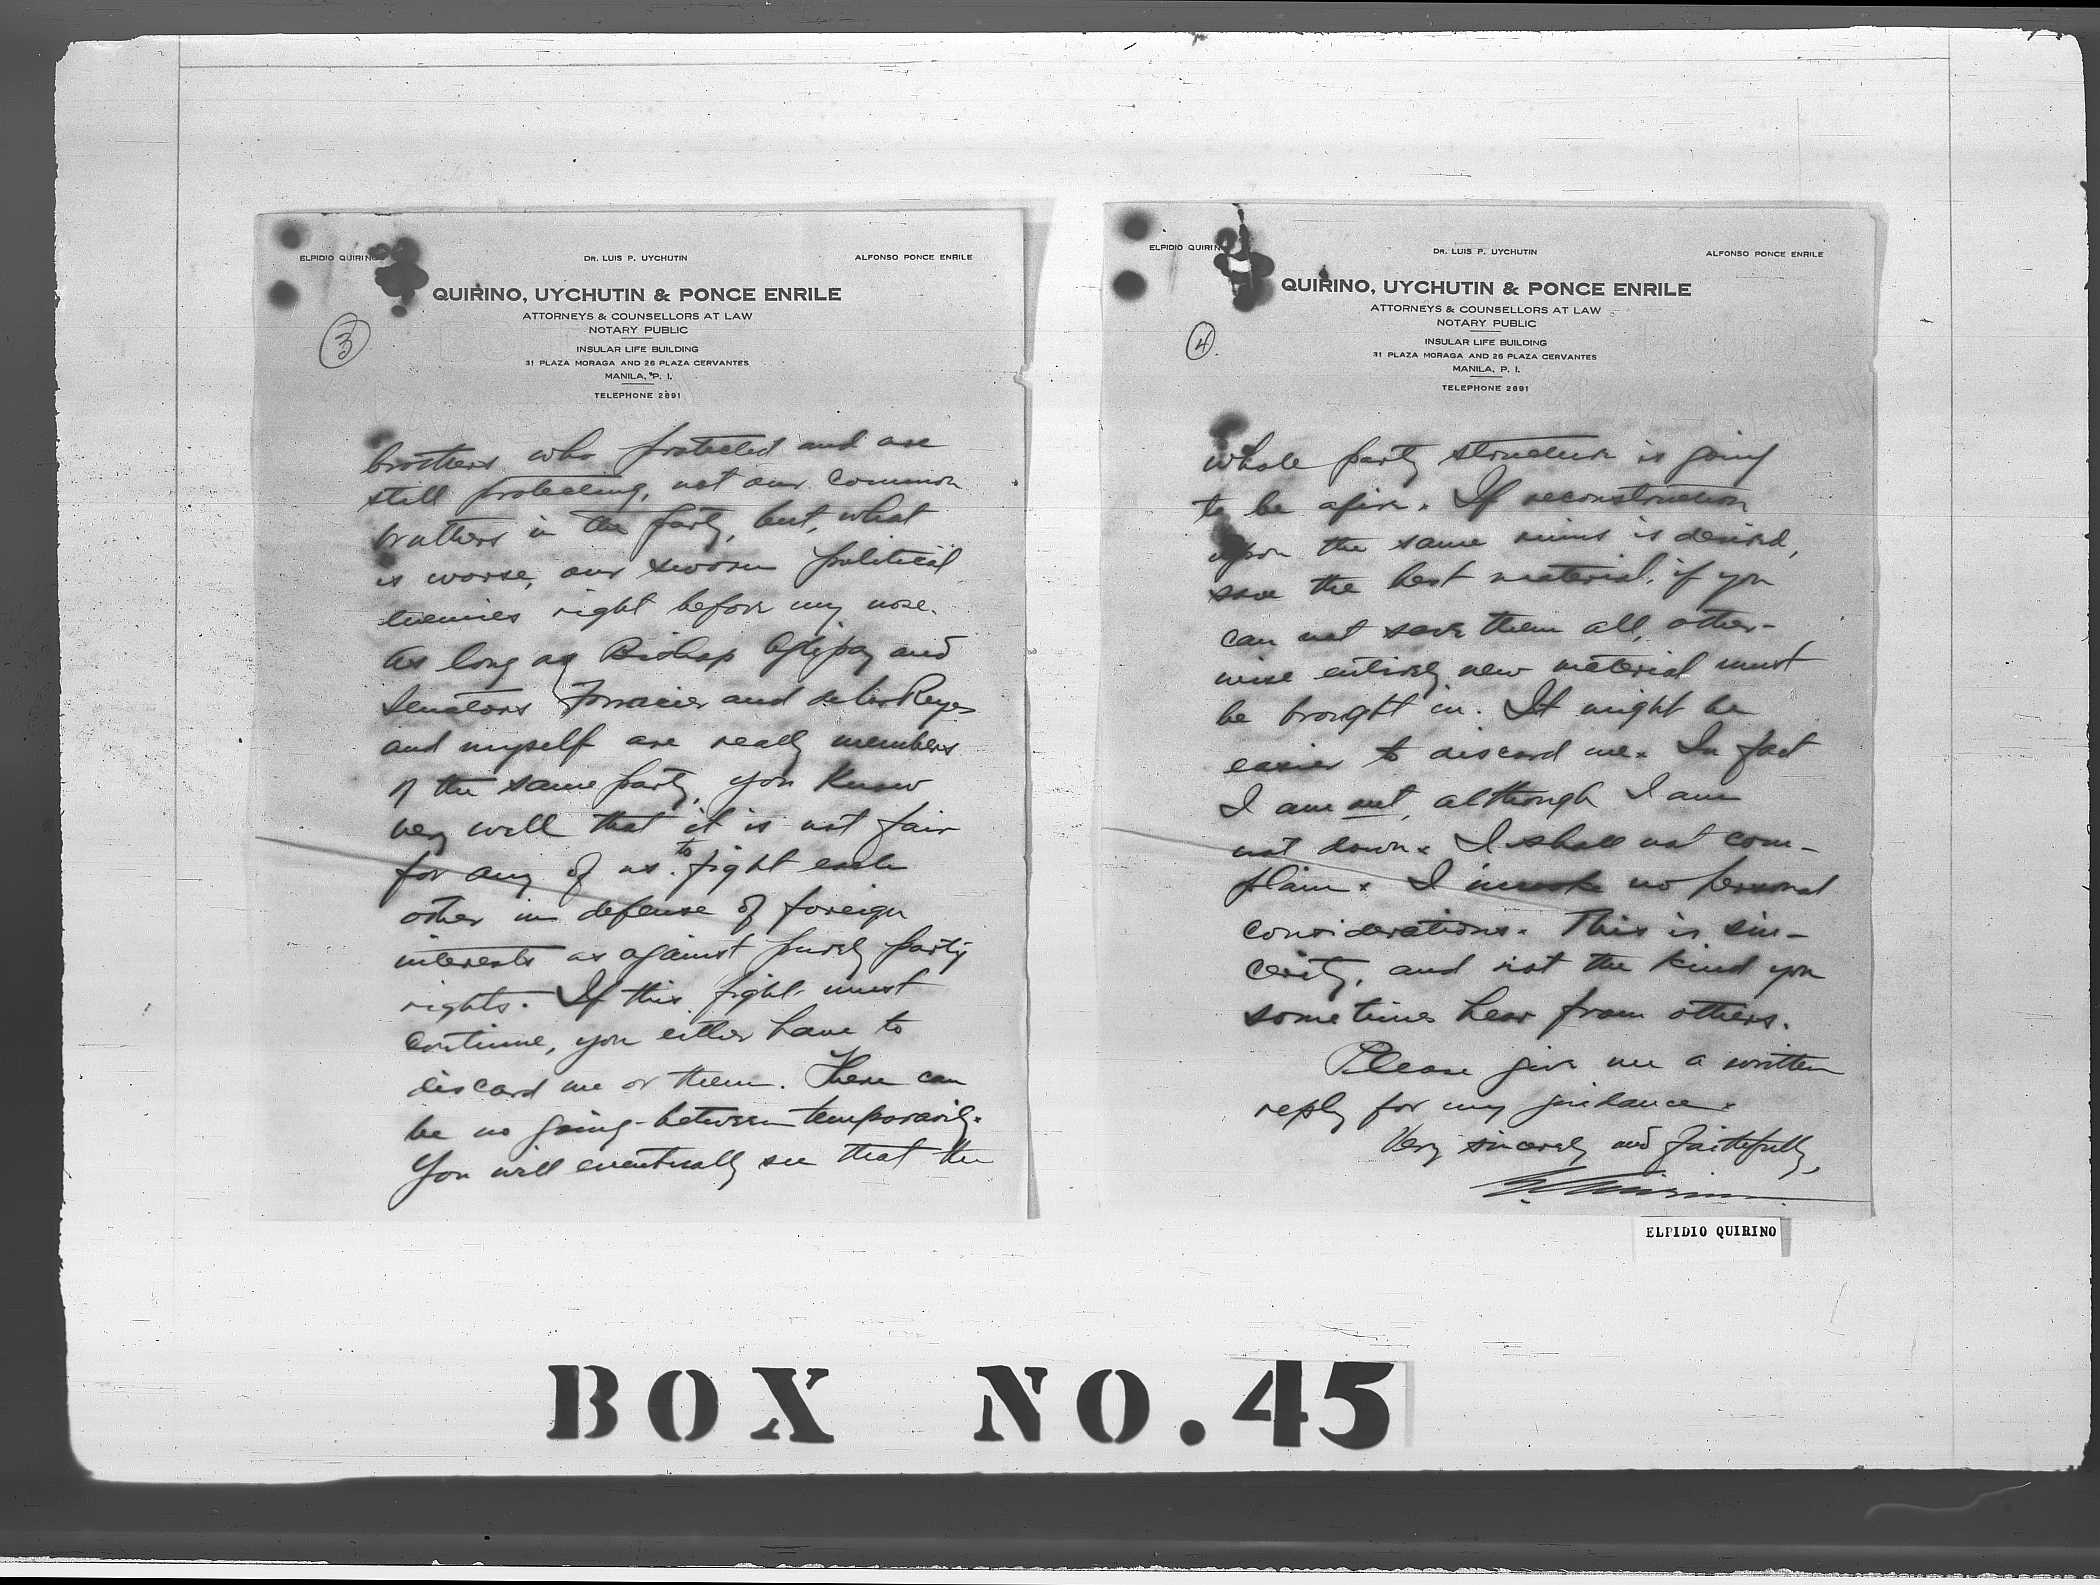 ELPIDIO QUIRINO
DR. LUIS P. UYCHUTIN
ALFONSO PONCE ENRILE
QUIRINO, UYCHUTIN & PONCE ENRILE
ATTORNEYS & COUNSELLORS AT LAW
NOTARY PUBLIC
INSULAR LIFE BUILDING
31 PLAZA MORAGA AND 26 PLAZA CERVANTES
MANILA, P. I.
TELEPHONE 2891
3
brothers who protected and are
still protecting, not our common
brothers in the party, but, what
is worse, our sworn political
enemies right before my nose.
As long as Bishop Aglipay and
Senators and de los Reyes
and myself are really members
of the same party, you know
very well that it is not fair
for any of us to fight each
other in defense of foreign
interests as against purely party
rights. If this fight must
continue, you either have to
discard me or them. There can
be no going-between temporarily.
You will eventually see that the
ELPIDIO QUIRINO
DR. LUIS P. UYCHUTIN
ALFONSO PONCE ENRILE
QUIRINO, UYCHUTIN & PONCE ENRILE
ATTORNEYS & COUNSELLORS AT LAW
NOTARY PUBLIC
INSULAR LIFE BUILDING
31 PLAZA MORAGA AND 26 PLAZA CERVANTES
MANILA, P. I.
TELEPHONE 2891
4
whole party structure is going
to be afire. If reconstruction
upon the same ruins is desired,
save the best material, if you
can not save them all, other-
wise entirely new material must
be brought in. It might be
easier to discard me. In fact
I am out, although I am
not down. I shall not com-
plain. I invoke no personal
considerations. This is sin-
cerity, and not the kind you
sometimes hear from others.
Please give me a written
reply for my guidance.
Very sincerely and faithfully,
E. Quirino
ELPIDIO QUIRINO
BOX NO. 45